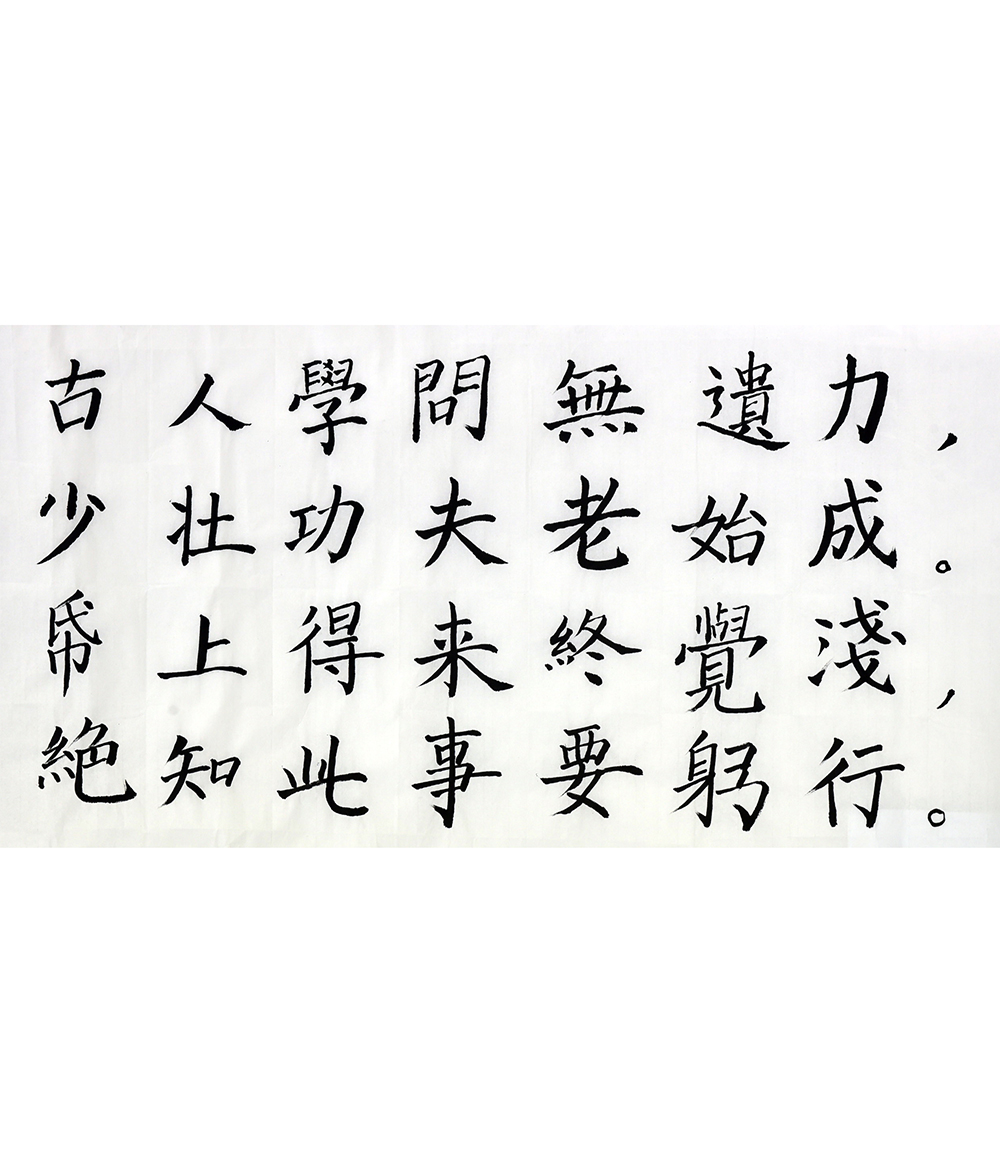 古人學問無遺力，
少壯功夫老始成。
帋上得来終覺淺，
絶知此事要躬行。